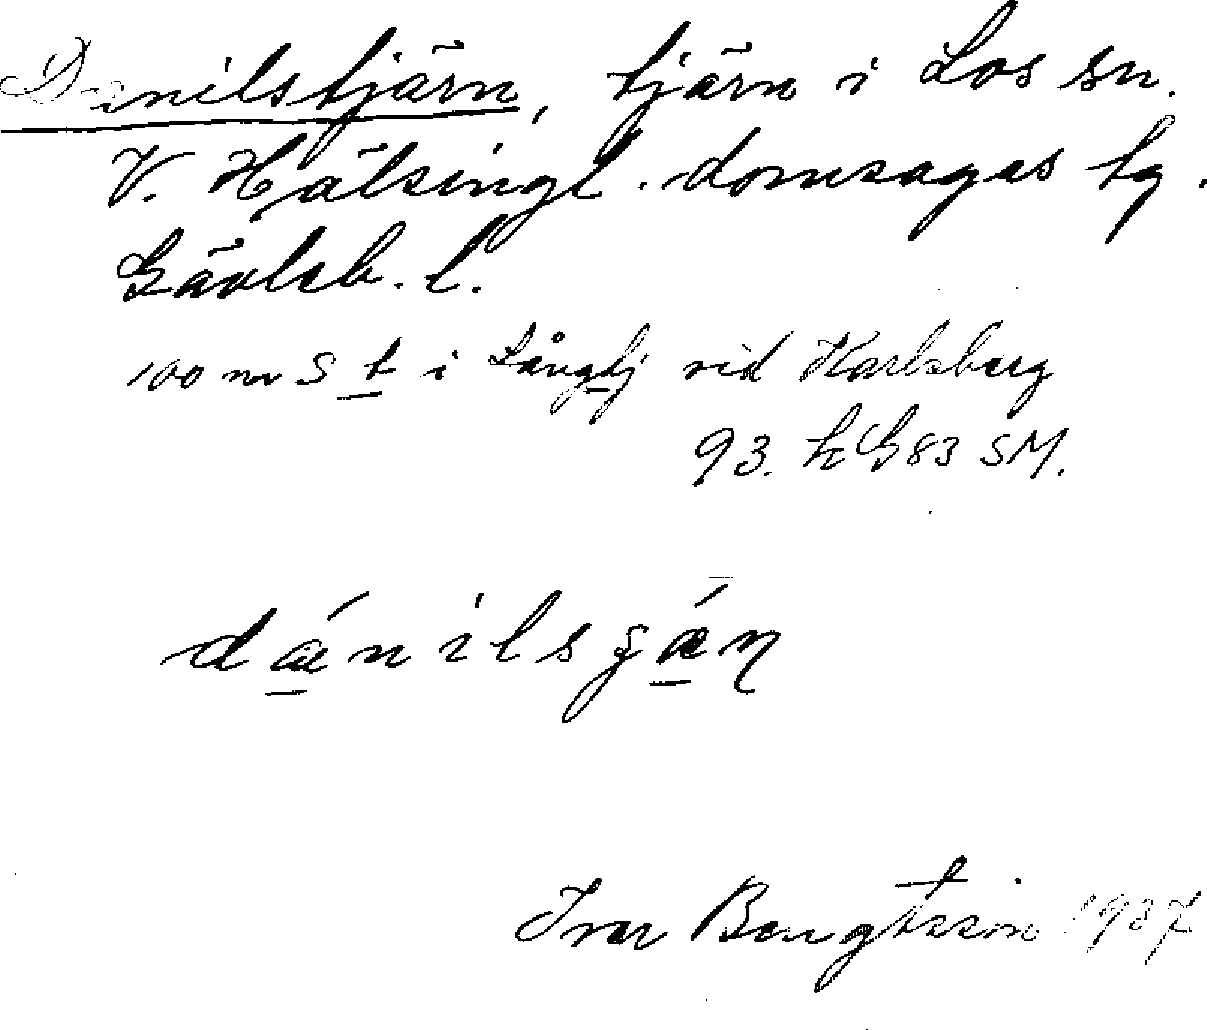 Danilstjärn, tjärn i Los sn.
V. Hälsingl. domsagas tg.
Gävleb. l.
100 m S t i Långtj vid Karlsberg
93. k G83 SM.
Ivar Bengtsson 1937